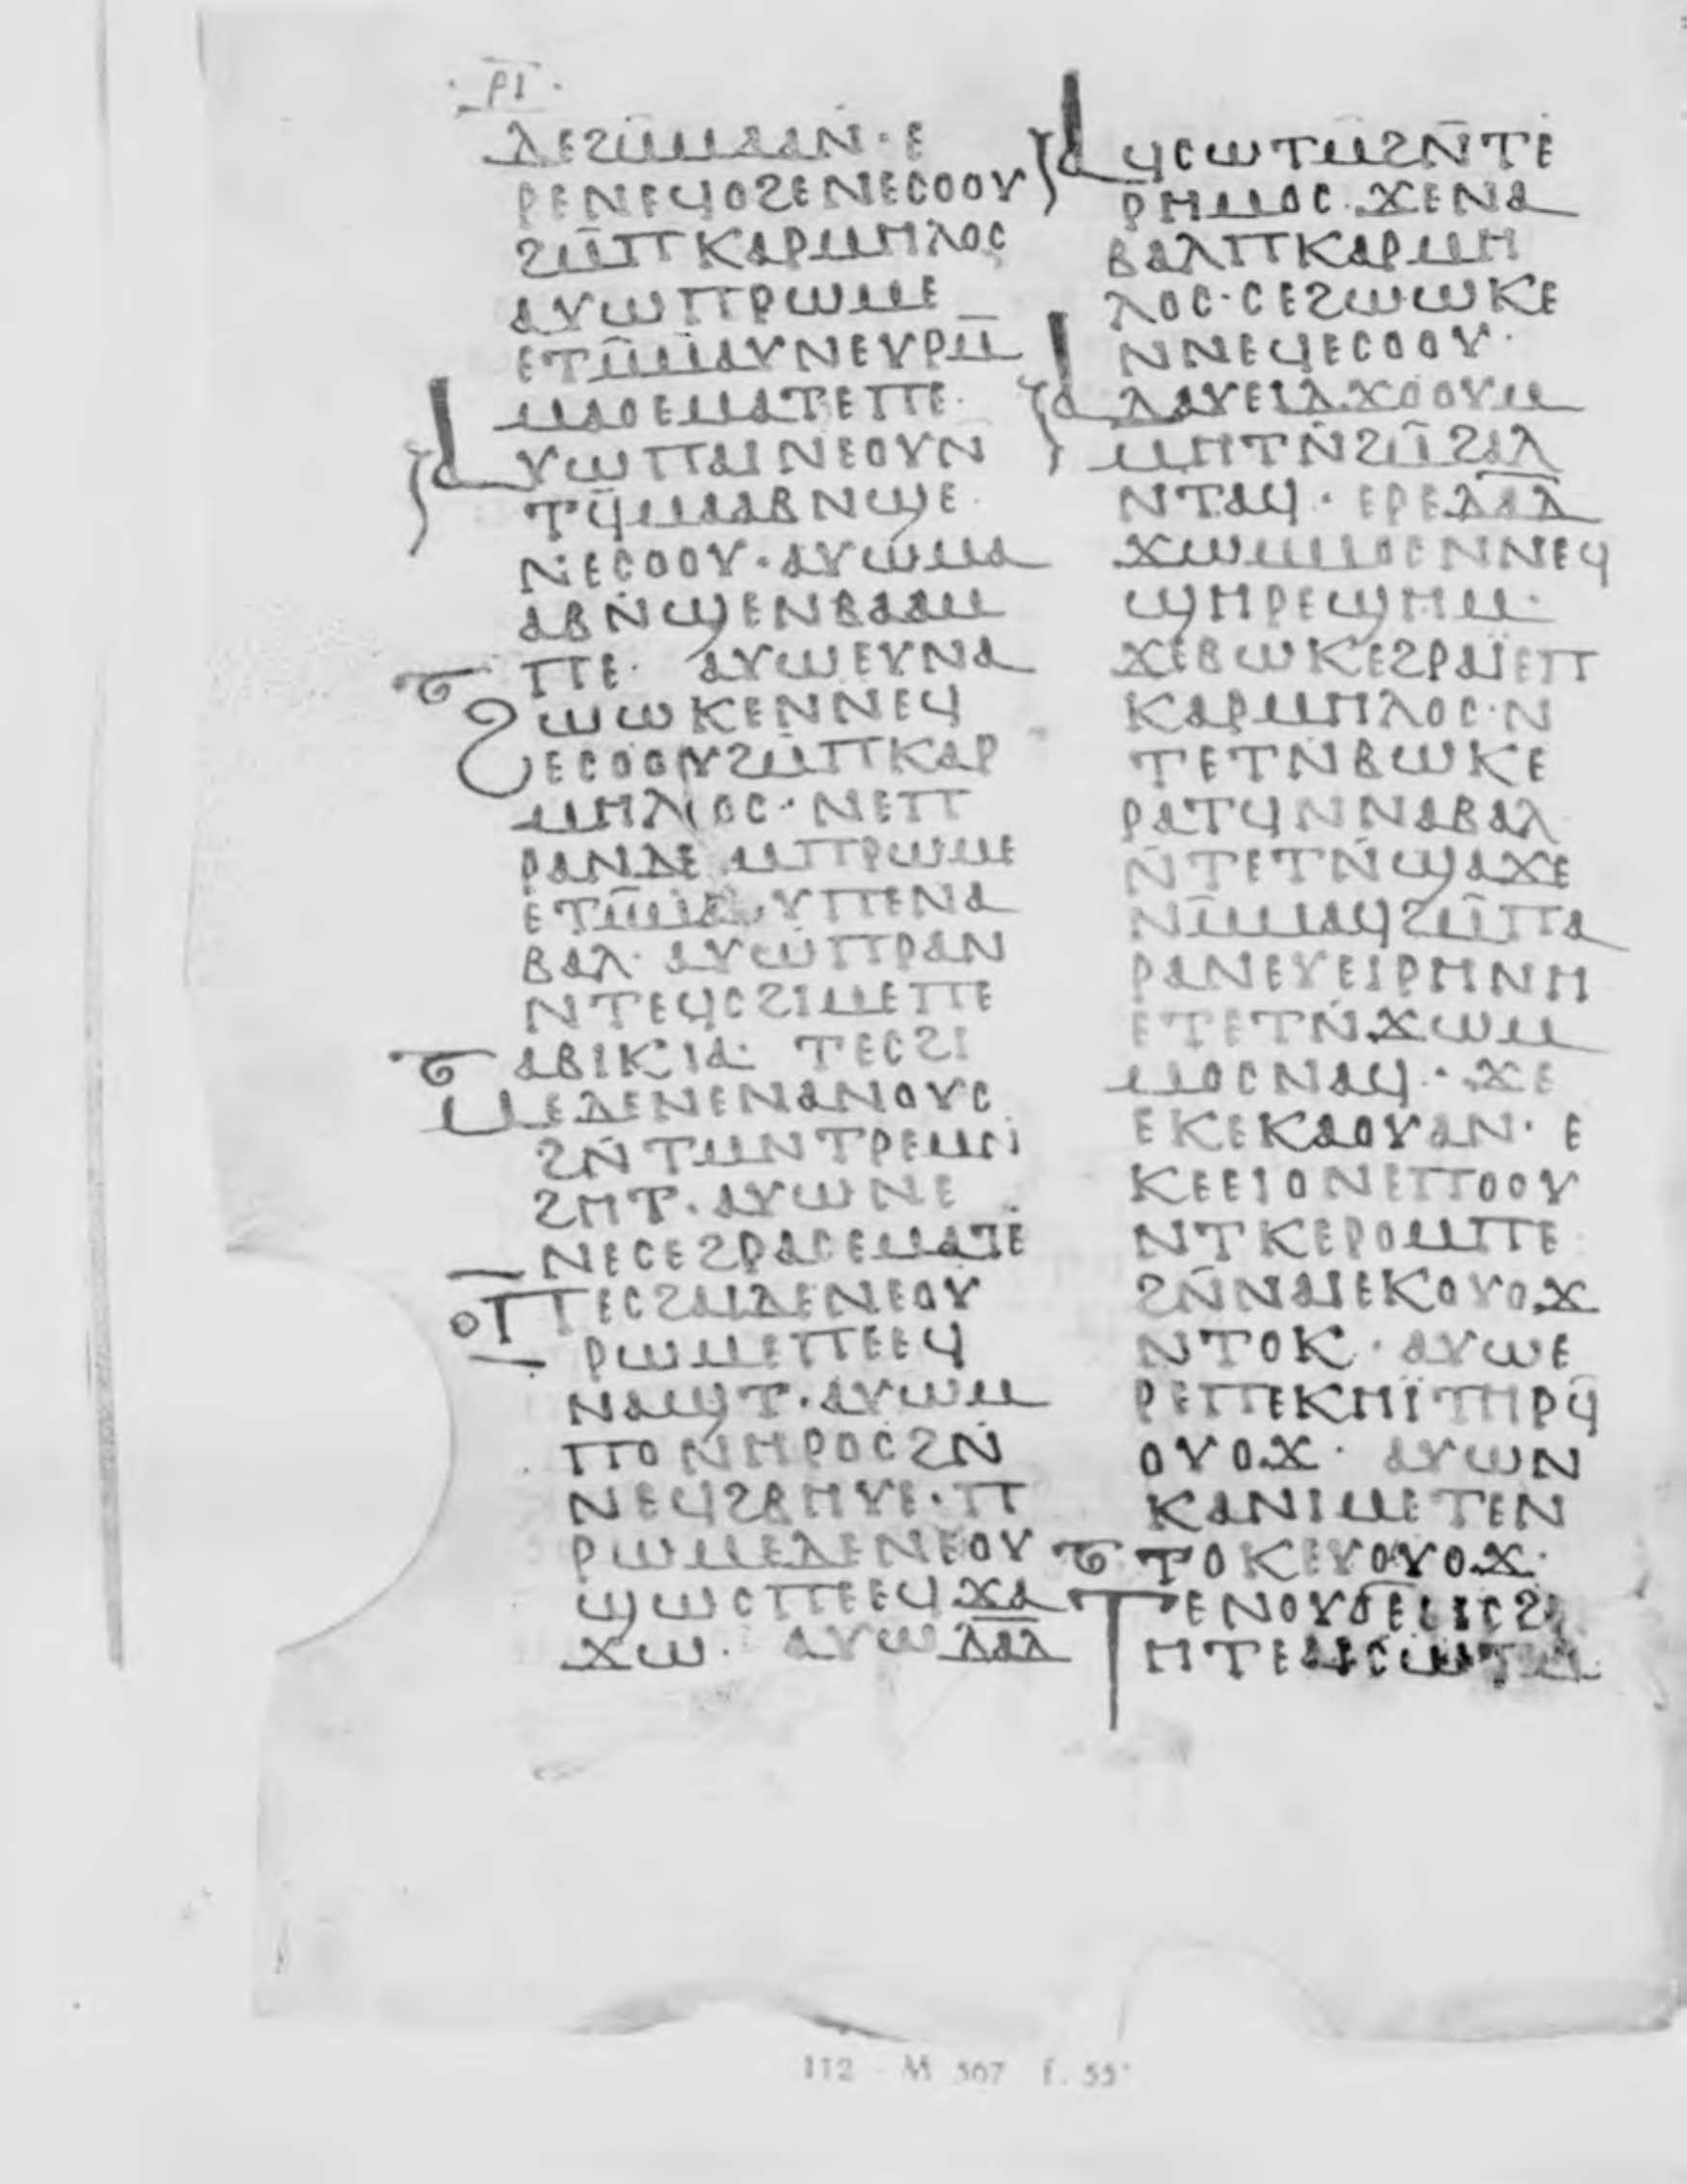 ⲣⲓ
ⲇⲉϩⲙ̄ⲙⲁⲁⲛ· ⲉ
ⲣⲉⲛⲉϥⲟϩⲉⲛⲉⲥⲟⲟⲩ
ϩⲙ̄ⲡⲕⲁⲣⲙⲏⲗⲟⲥ
ⲁⲩⲱⲡⲣⲱⲙⲉ
ⲉⲧⲙ̄ⲙⲁⲩⲛⲉⲩⲣⲙ̄
ⲙⲁⲟⲉⲙⲁⲧⲉⲡⲉ·
ⲁⲩⲱⲡⲁⲓⲛⲉⲟⲩⲛ
ⲧϥ̄ⲙⲁⲁⲃⲛϣⲉ·
ⲛ̇ⲉⲥⲟⲟⲩ· ⲁⲩⲱⲙⲁ
ⲁⲃⲛ̇ϣⲉⲛⲃⲁⲁⲙ
ⲡⲉ· ⲁⲩⲱⲉⲩⲛⲁ
ϩⲱⲱⲕⲉⲛⲛⲉϥ
ⲉⲥⲟⲟⲩϩⲙ̄ⲡⲕⲁⲣ
ⲙⲏⲗⲟⲥ· ⲛⲉⲡ
ⲣⲁⲛⲇⲉ ⲙⲡⲣⲱⲙⲉ
ⲉⲧⲙ̄ⲙⲁⲩⲡⲉⲛⲁ
ⲃⲁⲗ· ⲁⲩⲱⲡⲣⲁⲛ
ⲛⲧⲉϥⲥϩⲓⲙⲉⲡⲉ
ⲁⲃⲓⲕⲓⲁ· ⲧⲉⲥϩⲓ
ⲙⲉⲇⲉⲛⲉⲛⲁⲛⲟⲩⲥ
ϩⲛ̇ⲧⲙⲛⲧⲣⲉⲙⲛ̇
ϩⲏⲧ· ⲁⲩⲱⲛⲉ
ⲛⲉⲥⲉϩⲣⲁⲥⲉⲙⲁⲧⲉ
ⲡⲉⲥϩⲁⲓⲇⲉⲛⲉⲟⲩ
ⲣⲱⲙⲉⲡⲉⲉϥ
ⲛⲁϣⲧ· ⲁⲩⲱⲙ
ⲡⲟⲛⲏⲣⲟⲥϩⲛ̇
ⲛⲉϥϩⲃⲏⲩⲉ· ⲡ
ⲣⲱⲙⲉⲇⲉⲛⲉⲟⲩ
ϣⲱⲥⲡⲉⲉϥϫⲁ
ϫⲱ· ⲁⲩⲱⲇⲁⲇ̅
ⲁϥⲥⲱⲧⲙ̄ϩⲛ̄ⲧⲉ
ⲣⲏⲙⲟⲥ· ϫⲉⲛⲁ
ⲃⲁⲗⲡⲕⲁⲣⲙⲏ
ⲗⲟⲥ· ⲥⲉϩⲱⲱⲕⲉ
ⲛⲛⲉϥⲉⲥⲟⲟⲩ·
ⲁⲇⲁⲩⲉⲓⲇϫⲟⲟⲩⲙ
ⲙⲏⲧⲛ̇ϩⲙ̄ϩⲁⲗ
ⲛⲧⲁϥ· ⲉⲣⲉⲇⲁⲇ̅
ϫⲱⲙⲙⲟⲥⲛⲛⲉϥ
ϣⲏⲣⲉϣⲏⲙ·
ϫⲉⲃⲱⲕⲉϩⲣⲁⲓ̈ⲉⲡ
ⲕⲁⲣⲙⲏⲗⲟⲥ· ⲛ
ⲧⲉⲧⲛ̇ⲃⲱⲕⲉ
ⲣⲁⲧϥⲛⲛⲁⲃⲁⲗ
ⲛ̇ⲧⲉⲧⲛ̇ϣⲁϫⲉ
ⲛⲙ̄ⲙⲁϥϩⲙ̄ⲡⲁ
ⲣⲁⲛⲉⲩⲉⲓⲣⲏⲛⲏ
ⲉⲧⲉⲧⲛ̇ϫⲱⲙ
ⲙⲟⲥⲛⲁϥ· ϫⲉ
ⲉⲕⲉⲕⲁⲟⲩⲁⲛ· ⲉ
ⲕⲉⲉⲓⲟⲛⲉⲡⲟⲟⲩ
ⲛⲧⲕⲉⲣⲟⲙⲡⲉ
ϩⲛ̄ⲛⲁⲓⲉⲕⲟⲩⲟϫ
ⲛⲧⲟⲕ· ⲁⲩⲱⲉ
ⲣⲉⲡⲉⲕⲏⲓ̈ⲧⲏⲣϥ̄
ⲟⲩⲟϫ· ⲁⲩⲱⲛ
ⲕⲁⲛⲓⲙⲉⲧⲉⲛ
ⲧⲟⲕⲉⲩⲟⲩⲟϫ·
ⲧⲉⲛⲟⲩϭⲉⲉⲓⲥϩ
ⲏⲧⲉⲁⲓⲥⲱⲧⲙ
112 - M 567 f. 55ᵛ